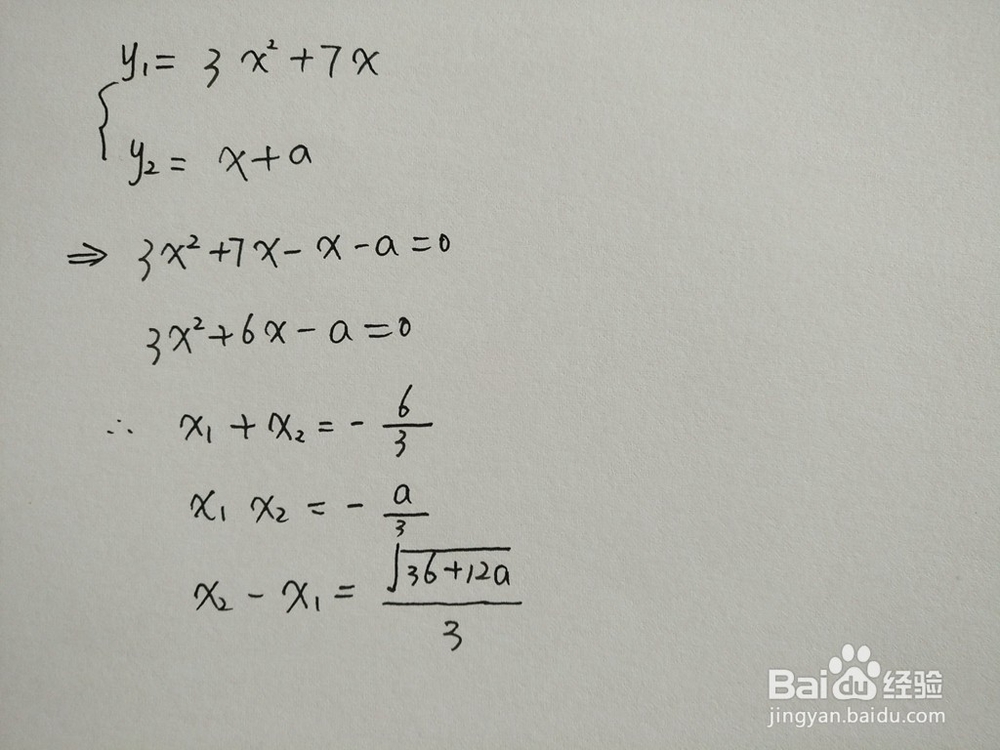 y₁ = 3x² + 7x
y₂ = x + a
⇒ 3x² + 7x - x - a = 0
3x² + 6x - a = 0
∴ x₁ + x₂ = - 6/3
x₁ x₂ = - a/3
x₂ - x₁ = √(36+12a)/3
Baidu 经验
jingyan.baidu.com